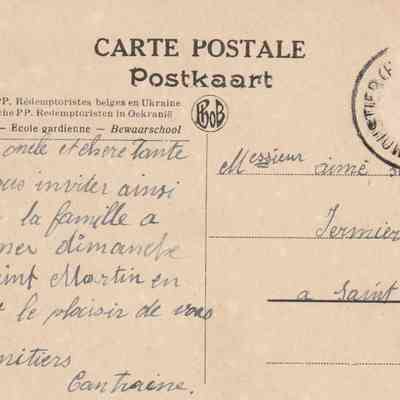 CARTE POSTALE
Postkaart
PP. Rédemptoristes belges en Ukraine
che PP. Redemptoristen in Oekranië
— Ecole gardienne — Bewaarschool
BOB
MOUSTIER
oncle et chère tante
ous inviter ainsi
la famille a
ner dimanche
int Martin en
le plaisir de vous
mitiers
Cantraine.
Messieur aimé
Fermier
a Saint